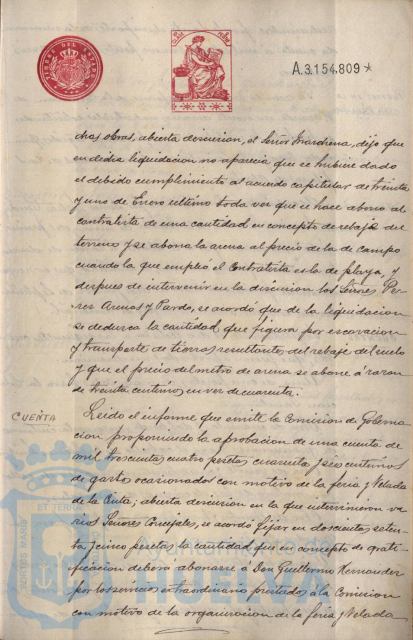 A.3.154.809*
chas obras, abierta discusion, el Señor Marchena, dijo que
en dicha liquidacion no aparecia que se hubiese dado
el debido cumplimiento al acuerdo capitular de treinta
y uno de Enero ultimo toda vez que se hace abono al
contratista de una cantidad en concepto de rebaje del
terreno y se abona la arena al precio de la de campo
cuando la que empleó el Contratista es la de playa, y
despues de intervenir en la discusion los Señores Pe-
rez Arenas y Pardo, se acordó que de la liquidacion
se deduzca la cantidad que figura por escavacion
y transporte de tierras resultantes del rebaje del suelo
y que el precio del metro de arena se abone á razon
de treinta centimos en vez de cuarenta.
CUENTA
Leido el informe que emite la Comision de Goberna-
cion proponiendo la aprobacion de una cuenta de
mil trescientas cuatro pesetas cuarenta y seis centimos
de gastos ocasionados con motivo de la feria y Velada
de la Cinta; abierta discusion en la que intervinieron va-
rios Señores Concejales, se acordó fijar en doscientas seten-
ta y cinco pesetas la cantidad que en concepto de grati-
ficacion debera abonarse á Don Guillermo Hernandez
por los servicios extraordinarios prestados á la Comision
con motivo de la organizacion de la feria y Velada
PORTUS MARIS
ET TERRÆ
Ayuntamiento de
HUELVA